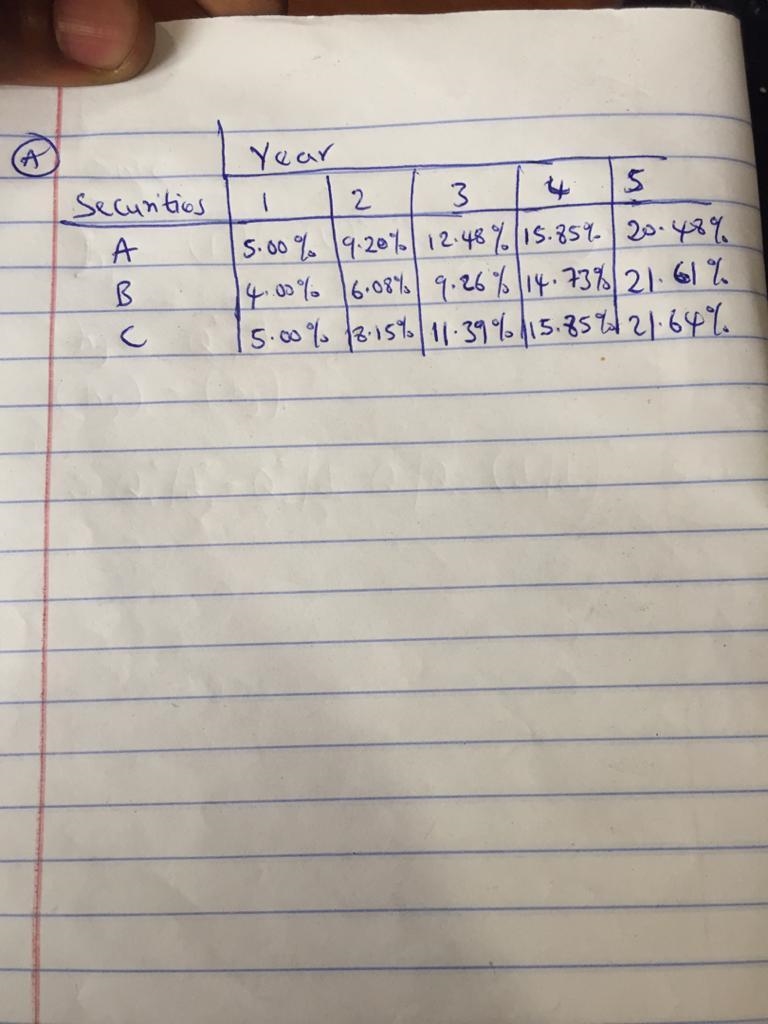 A Year
Securities 1 2 3 4 5
A 5.00% 9.20% 12.48% 15.85% 20.48%
B 4.00% 6.08% 9.26% 14.73% 21.61%
C 5.00% 8.15% 11.39% 15.85% 21.64%